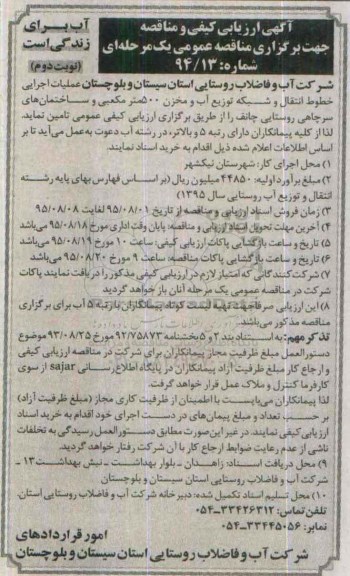 آب برای
زندگی است
(نوبت دوم)
آگهی ارزیابی کیفی و مناقصه
جهت برگزاری مناقصه عمومی یک مرحله‌ای
شماره: ۹۴/۱۳
شرکت آب و فاضلاب روستایی استان سیستان و بلوچستان عملیات اجرایی
خطوط انتقال و شبکه توزیع آب و مخزن ۵۰۰متر مکعبی و ساختمان‌های
سرچاهی روستایی چانف را از طریق برگزاری ارزیابی کیفی عمومی تامین نماید.
لذا از کلیه پیمانکاران دارای رتبه ۵ و بالاتر، در رشته آب دعوت به‌عمل می‌آید تا بر
اساس اطلاعات اعلام شده ذیل اقدام به خرید اسناد نمایند.
۱) محل اجرای کار: شهرستان نیکشهر
۲) مبلغ برآورد اولیه: ۴۴۸۵۰ میلیون ریال (بر اساس فهارس بهای پایه رشته
انتقال و توزیع آب روستایی سال ۱۳۹۵)
۳) زمان فروش اسناد ارزیابی و مناقصه از تاریخ ۹۵/۰۸/۰۱ لغایت ۹۵/۰۸/۰۸
۴) آخرین مهلت تحویل اسناد ارزیابی و مناقصه: پایان وقت اداری مورخ ۹۵/۰۸/۱۸ می‌باشد
۵) تاریخ و ساعت بازگشایی پاکات ارزیابی کیفی: ساعت ۱۰ مورخ ۹۵/۰۸/۱۹ می‌باشد
۶) تاریخ و ساعت بازگشایی پاکات مناقصه: ساعت ۹ مورخ ۹۵/۰۸/۲۰ می‌باشد
۷) شرکت‌کنندگانی که امتیاز لازم در ارزیابی کیفی مذکور را دریافت نمایند پاکات
شرکت در مناقصه عمومی یک مرحله آنان باز خواهد گردید
۸) این ارزیابی صرفا جهت تهیه لیست کوتاه پیمانکاران با رتبه ۵ آب برای برگزاری
مناقصه مذکور می‌باشد.
تذکر مهم: به استناد بند ۲ و ۵ بخشنامه ۹۲/۷۵۸۷۳ مورخ ۹۳/۰۸/۲۵ موضوع
دستورالعمل مبلغ ظرفیت مجاز پیمانکاران برای شرکت در مناقصه ارزیابی کیفی
و ارجاع کار مبلغ ظرفیت آزاد پیمانکاران در پایگاه اطلاع رسانی sajar از سوی
کارفرما کنترل و ملاک عمل قرار خواهد گرفت.
لذا پیمانکاران می‌بایست با اطمینان از ظرفیت کاری مجاز (مبلغ ظرفیت آزاد)
بر حسب تعداد و مبلغ پیمان‌های در دست اجرای خود اقدام به خرید اسناد
ارزیابی کیفی نمایند. در غیر این صورت مطابق دستورالعمل رسیدگی به تخلفات
ناشی از عدم رعایت ضوابط ارجاع کار با آن شرکت رفتار خواهد گردید.
۹) محل دریافت اسناد: زاهدان ـ بلوار بهداشت ـ نبش بهداشت ۱۳ ـ
شرکت آب و فاضلاب روستایی استان سیستان و بلوچستان
۱۰) محل تسلیم اسناد تکمیل شده: دبیرخانه شرکت آب و فاضلاب روستایی استان.
تلفن تماس: ۳۳۴۲۶۳۱۲ـ۰۵۴
نمابر: ۳۳۴۴۵۰۵۶ـ۰۵۴
امور قراردادهای
شرکت آب و فاضلاب روستایی استان سیستان و بلوچستان